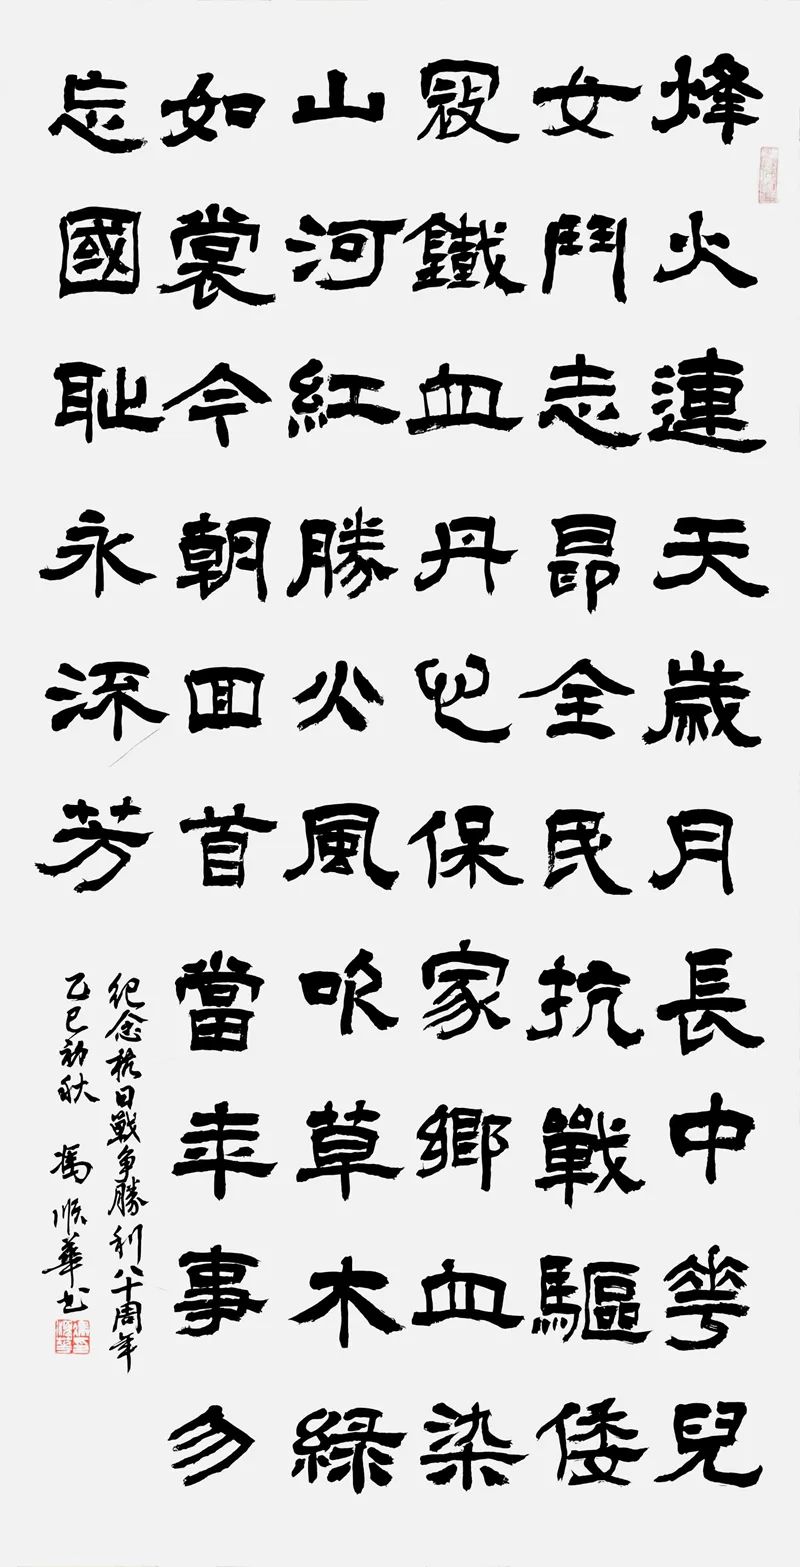 烽火連天歲月長中華兒
女鬥志昂全民抗戰驅倭
寇鐵血丹心保家鄉血染
山河紅勝火風吹草木綠
如裳今朝回首當年事勿
忘國恥永流芳
紀念抗日戰爭勝利八十周年
乙巳初秋 馮順華书